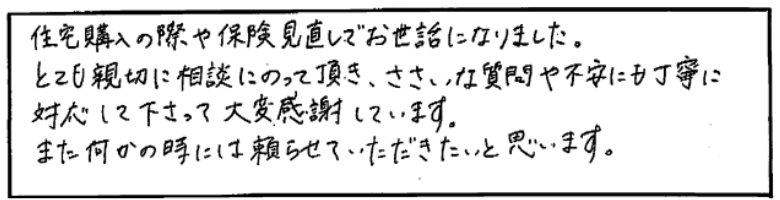 住宅購入の際や保険見直しでお世話になりました。
とても親切に相談にのって頂き、ささいな質問や不安にも丁寧に
対応して下さって大変感謝しています。
また何かの時には頼らせていただきたいと思います。